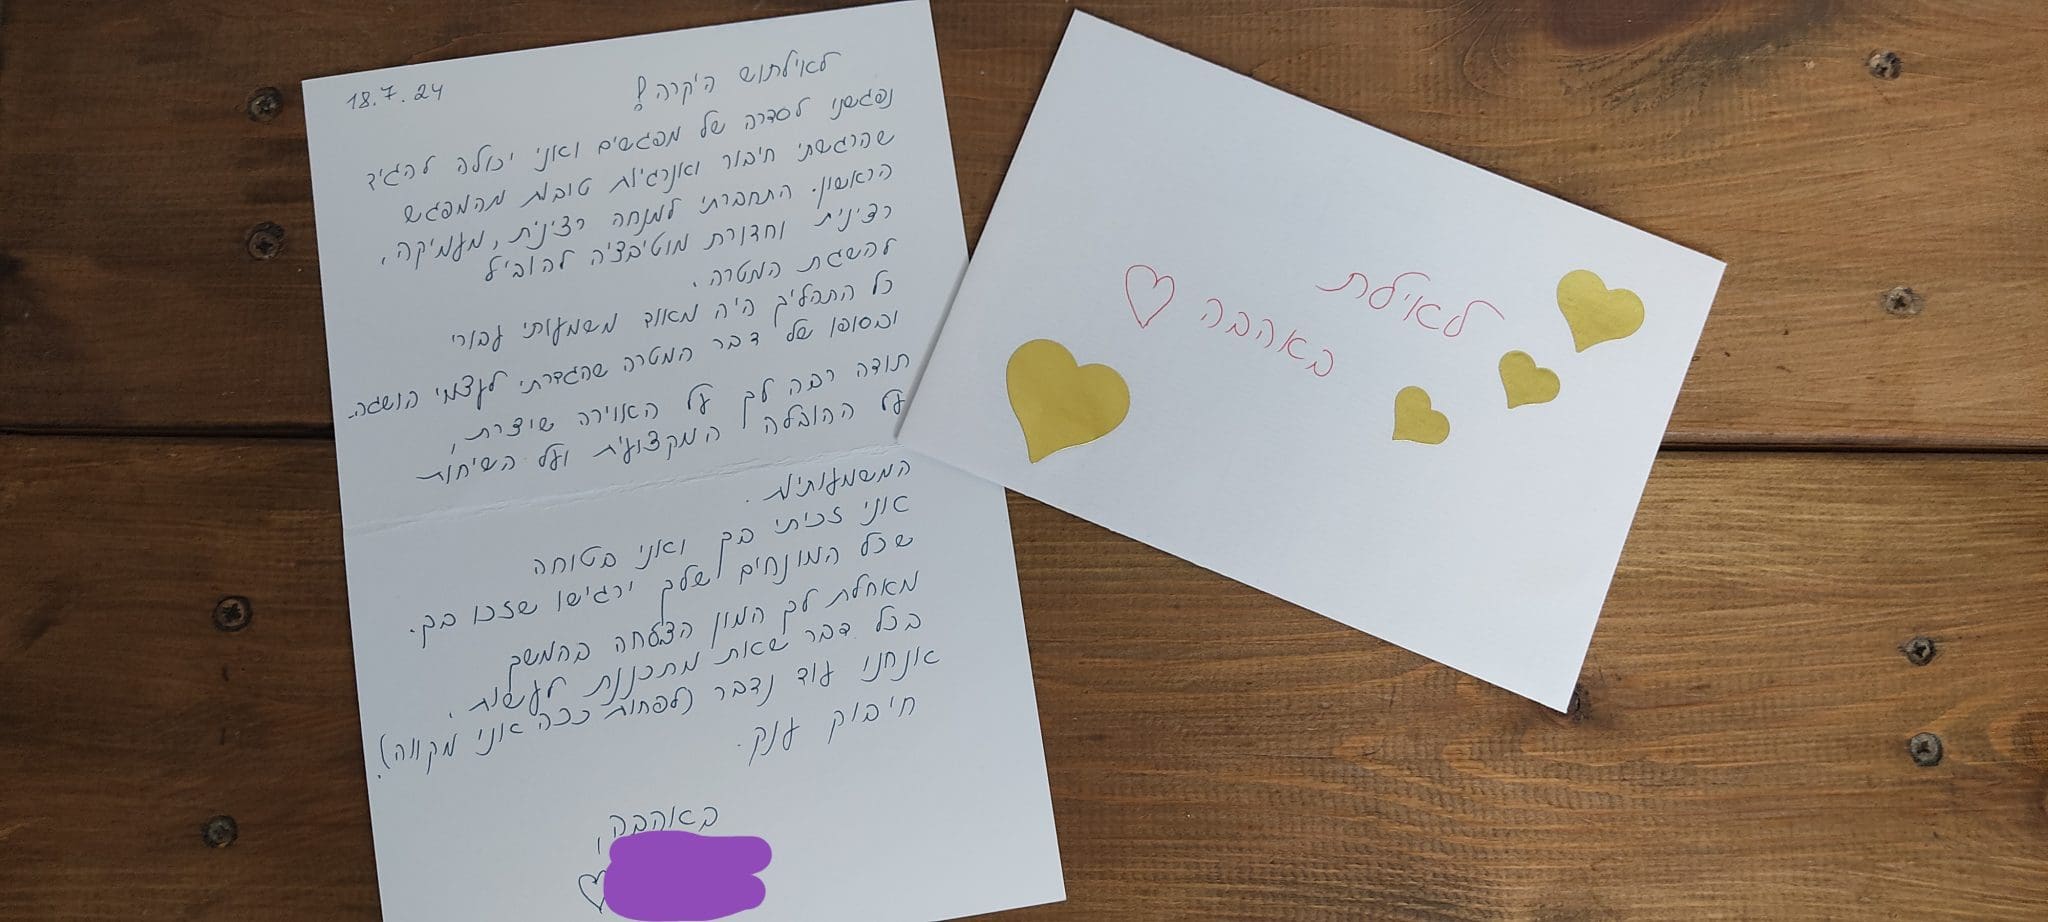 18.7.24
לאילתוש היקרה!
נפגשנו לסדרה של מפגשים ואני יכולה להגיד
שהרגשתי חיבור ואנרגיות טובות מהמפגש
הראשון. התחברתי למנחה רצינית, מעמיקה,
רצינית וחדורת מוטיבציה להוביל
להשגת המטרה.
כל התהליך היה מאוד משמעותי עבורי
ובסופו של דבר המטרה שהגדרתי לעצמי הושגה.
תודה רבה לך על האווירה שיצרת,
על ההובלה המקצועית ועל השיחות
המשמעותיות.
אני זכיתי בך ואני בטוחה
שכל המונחים שלך ירגישו שזכו בך.
מאחלת לך המון הצלחה בהמשך
בכל דבר שאת מתכננת לעשות.
אנחנו עוד נדבר (לפחות ככה אני מקווה).
חיבוק ענק.
באהבה,
לאילת
באהבה